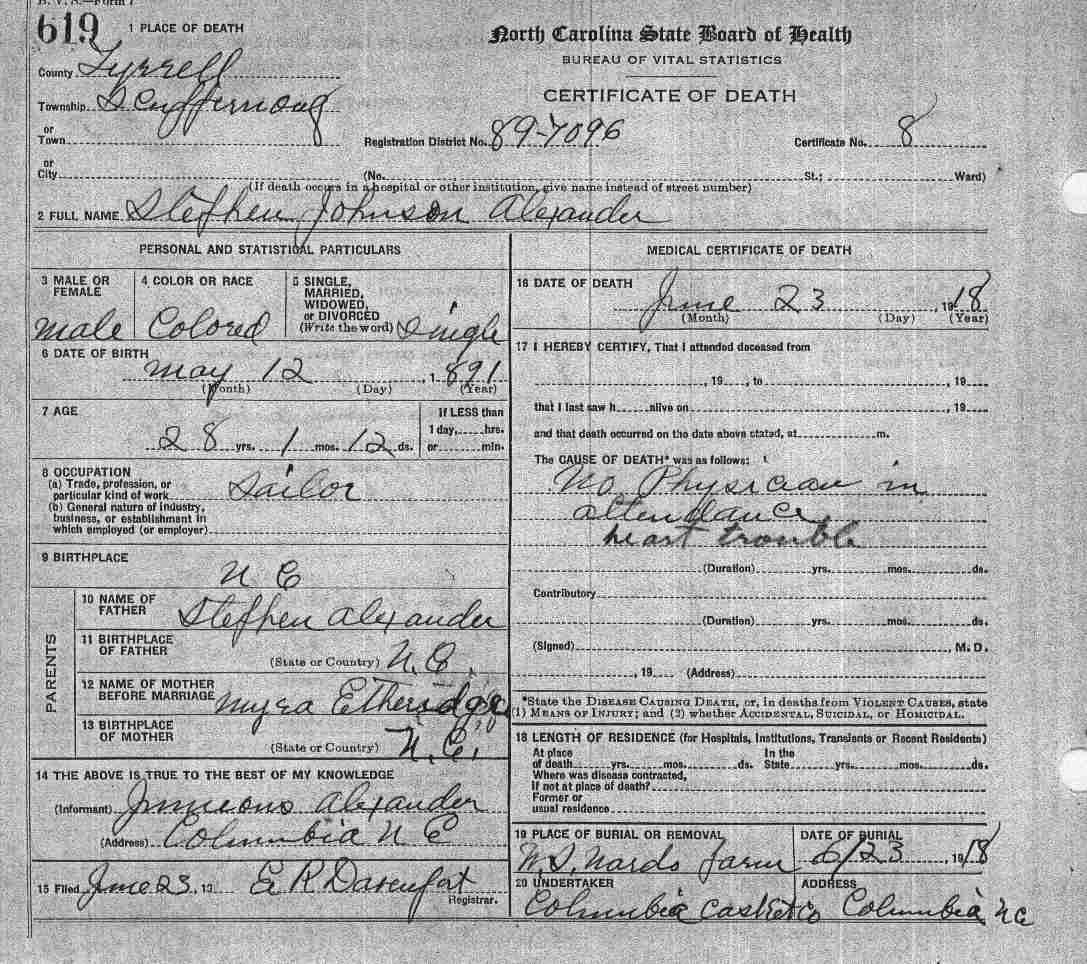 B. V. S.—Form 1
619
1 PLACE OF DEATH
North Carolina State Board of Health
BUREAU OF VITAL STATISTICS
CERTIFICATE OF DEATH
County Tyrrell
Township Scuppernong
or
Town
Registration District No. 89-7096
Certificate No. 8
or
City (No. St.; Ward)
(If death occurs in a hospital or other institution, give name instead of street number)
2 FULL NAME Stephen Johnson Alexander
PERSONAL AND STATISTICAL PARTICULARS
3 MALE OR FEMALE
male
4 COLOR OR RACE
Colored
5 SINGLE,
MARRIED,
WIDOWED,
or DIVORCED
(Write the word) Single
6 DATE OF BIRTH
May 12, 1891
(Month) (Day) (Year)
7 AGE
28 yrs. 1 mos. 12 ds.
If LESS than
1 day, hrs.
or min.
8 OCCUPATION
(a) Trade, profession, or
particular kind of work Sailor
(b) General nature of industry,
business, or establishment in
which employed (or employer)
9 BIRTHPLACE
N C
PARENTS
10 NAME OF
FATHER Stephen Alexander
11 BIRTHPLACE
OF FATHER
(State or Country) N.C.
12 NAME OF MOTHER
BEFORE MARRIAGE Myra Etheridge
13 BIRTHPLACE
OF MOTHER
(State or Country) N.C.
14 THE ABOVE IS TRUE TO THE BEST OF MY KNOWLEDGE
(Informant) Alexander
(Address) Columbia N C
15 Filed June 23, 19 E R Davenport
Registrar.
MEDICAL CERTIFICATE OF DEATH
16 DATE OF DEATH
June 23, 1918
(Month) (Day) (Year)
17 I HEREBY CERTIFY, That I attended deceased from
, 19 , to , 19
that I last saw h alive on , 19
and that death occurred on the date above stated, at m.
The CAUSE OF DEATH* was as follows:
No Physician in
attendance
heart trouble
(Duration) yrs. mos. ds.
Contributory
(Duration) yrs. mos. ds.
(Signed) , M. D.
, 19 (Address)
*State the DISEASE CAUSING DEATH, or, in deaths from VIOLENT CAUSES, state
(1) MEANS OF INJURY; and (2) whether ACCIDENTAL, SUICIDAL, or HOMICIDAL.
18 LENGTH OF RESIDENCE (for Hospitals, Institutions, Transients or Recent Residents)
At place
of death yrs. mos. ds.
In the
State yrs. mos. ds.
Where was disease contracted,
If not at place of death?
Former or
usual residence
19 PLACE OF BURIAL OR REMOVAL
farm
DATE OF BURIAL
6/23, 1918
20 UNDERTAKER
Columbia Casket Co
ADDRESS
Columbia N C